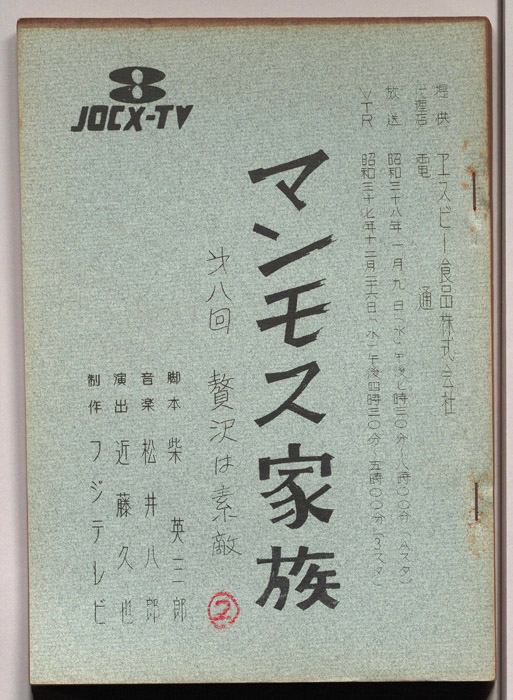 8
JOCX-TV
提供 ヱスビー食品株式会社
代理店 電通
放送 昭和三十八年一月九日(水)午後七時三〇分〜八時〇〇分(八スタ)
VTR 昭和三十七年十二月二十六日(水)午後四時三〇分〜五時〇〇分
マンモス家族
㐧八回 贅沢は素敵
②
脚本 柴英三郎
音楽 松井八郎
演出 近藤久也
制作 フジテレビ